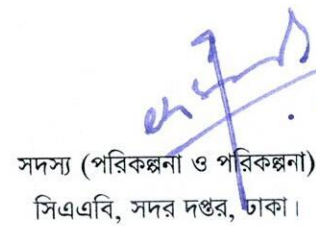 সদস্য (পরিকল্পনা ও পরিকল্পনা)
সিএএবি, সদর দপ্তর, ঢাকা।